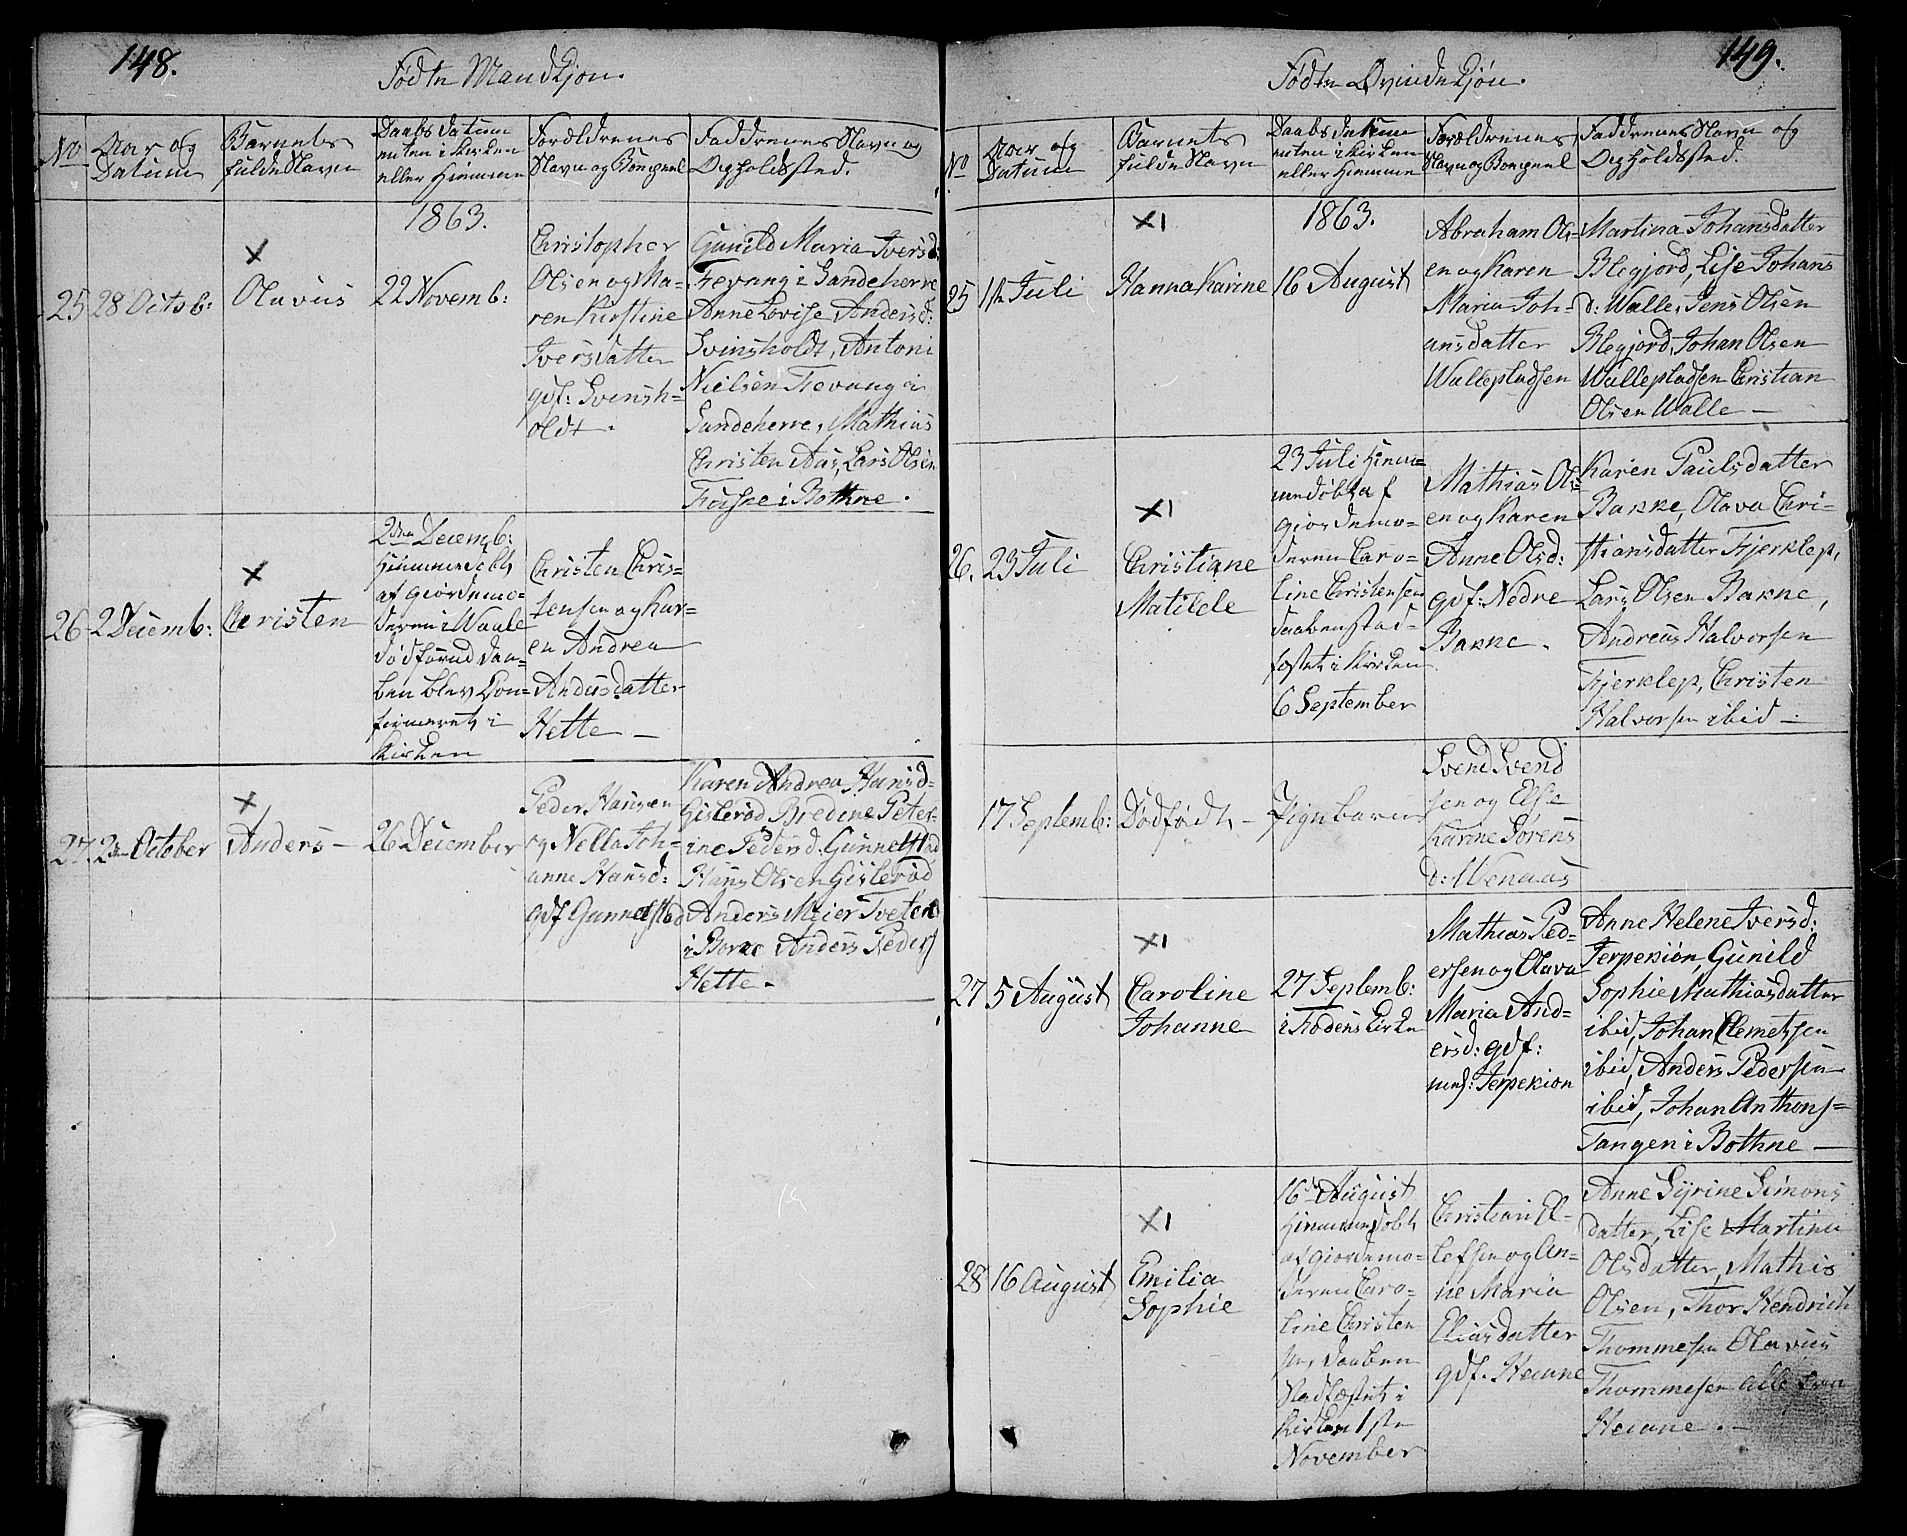 148.
Fødte Mandkjøn.
No
Aar og
Datum
Barnets
fulde Navn
Daabs Datum
enten i Kirken
eller Hiemme
Forældrenes
Navn og Borgerl
Faddrenes Navn og
Opholdssted.
25
28 Octob:
Olavus
1863.
22 Novemb:
Christopher
Olsen og Ma-
ren Kirstine
Iversdatter
gdf: Svensh-
oldt.
Gunild Maria Iversd:
Frevang i Sandeherre
Anne Lovise Andersd:
Svinsholdt, Antoni
Nielsen Frevang i
Sandeherre, Mathius
Christen Aas, Lars Olsen
Fuske i Bothne.
26
2 Decemb:
Christen
2den Decemb:
hiemmedøbt
af giordemo-
deren i Waale
død førend daa-
ben blev kon-
firmeret i
Kirken
Christen Chris-
tensen og Kar-
en Andrea
Andersdatter
Hette —
27.
2den October
Anders —
26 December
Peder Hansen
og Nella Joh-
anne Hansd:
gdf Gunnestad
Karen Andrea Hansd-
Gislerød Bredine Peter-
ine Pedersd: Gunnestad
Hans Olsen Gislerød
Anders Meier Tveten
i Borre Anders Peders
Hette.
149.
Fødte Qvindekjøn.
No
Aar og
Datum
Barnets
fulde Navn
Daabs Datum
enten i Kirken
eller Hiemme
Forældrenes
Navn og Borgerl
Faddrenes Navn og
Opholdssted.
25
Juli
Hanna Karine
1863.
16 August
Abraham Ols-
en og Karen
Maria Joh-
ansdatter
Wallepladsen
Martina Johansdatter
Blegjord, Lise Johans
d: Walle, Jens Olsen
Blegjord, Johan Olsen
Wallepladsen Christian
Olsen Walle —
26.
23 Juli
Christiane
Matilde
23 Juli hiem-
medøbt af
giordemo-
deren Caro-
line Christensen
daaben stad-
fæstet i Kirken
6 September
Mathias Ols-
en og Karen
Anne Olsd:
gdf: Nedre
Bakke.
Karen Paulsdatter
Bakke, Olava Chri-
stiansdatter Fjerklep,
Lars Olsen Bakke,
Andreas Halvorsen
Fjerklep, Christen
Halvorsen ibid —
17 Septemb:
Dødfødt —
Pigebarn
Svend Svend
sen og Else
Karine Sørens
d: Wenaas
27
5 August
Caroline
Johanne
27 Septemb:
i Fødens Kirke
Mathias Ped-
ersen og Olava
Maria And-
ersd: gdf:
Jerpekion
Anne Helene Iversd:
Jerpekion, Gunild
Sophie Mathiasdatter
ibid, Johan Clemetsen
ibid, Anders Pedersen
ibid, Johan Anthons-
Tangen i Bothne —
28
16 August
Emilia
Sophie
16 August
hiemmedøbt
af giordemo-
deren Caro-
line Christen
sen, daaben
stadfæstet i
Kirken 1ste
November
Christian El-
lefsen og An-
ne Maria
Eliasdatter
gdf. Heiane
Anne Syrine Simons
datter, Lise Martine
Olsdatter, Mathis
Olsen, Thor Hendrich
Thommesen Olavus
Thommesen alle fra
Heiane. —